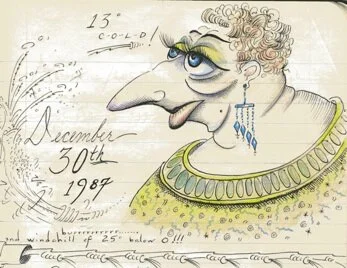 13°
C-O-L-D!
December
30th
1987
burrrrrrrrrrr
and windchill of 25° below 0!!!